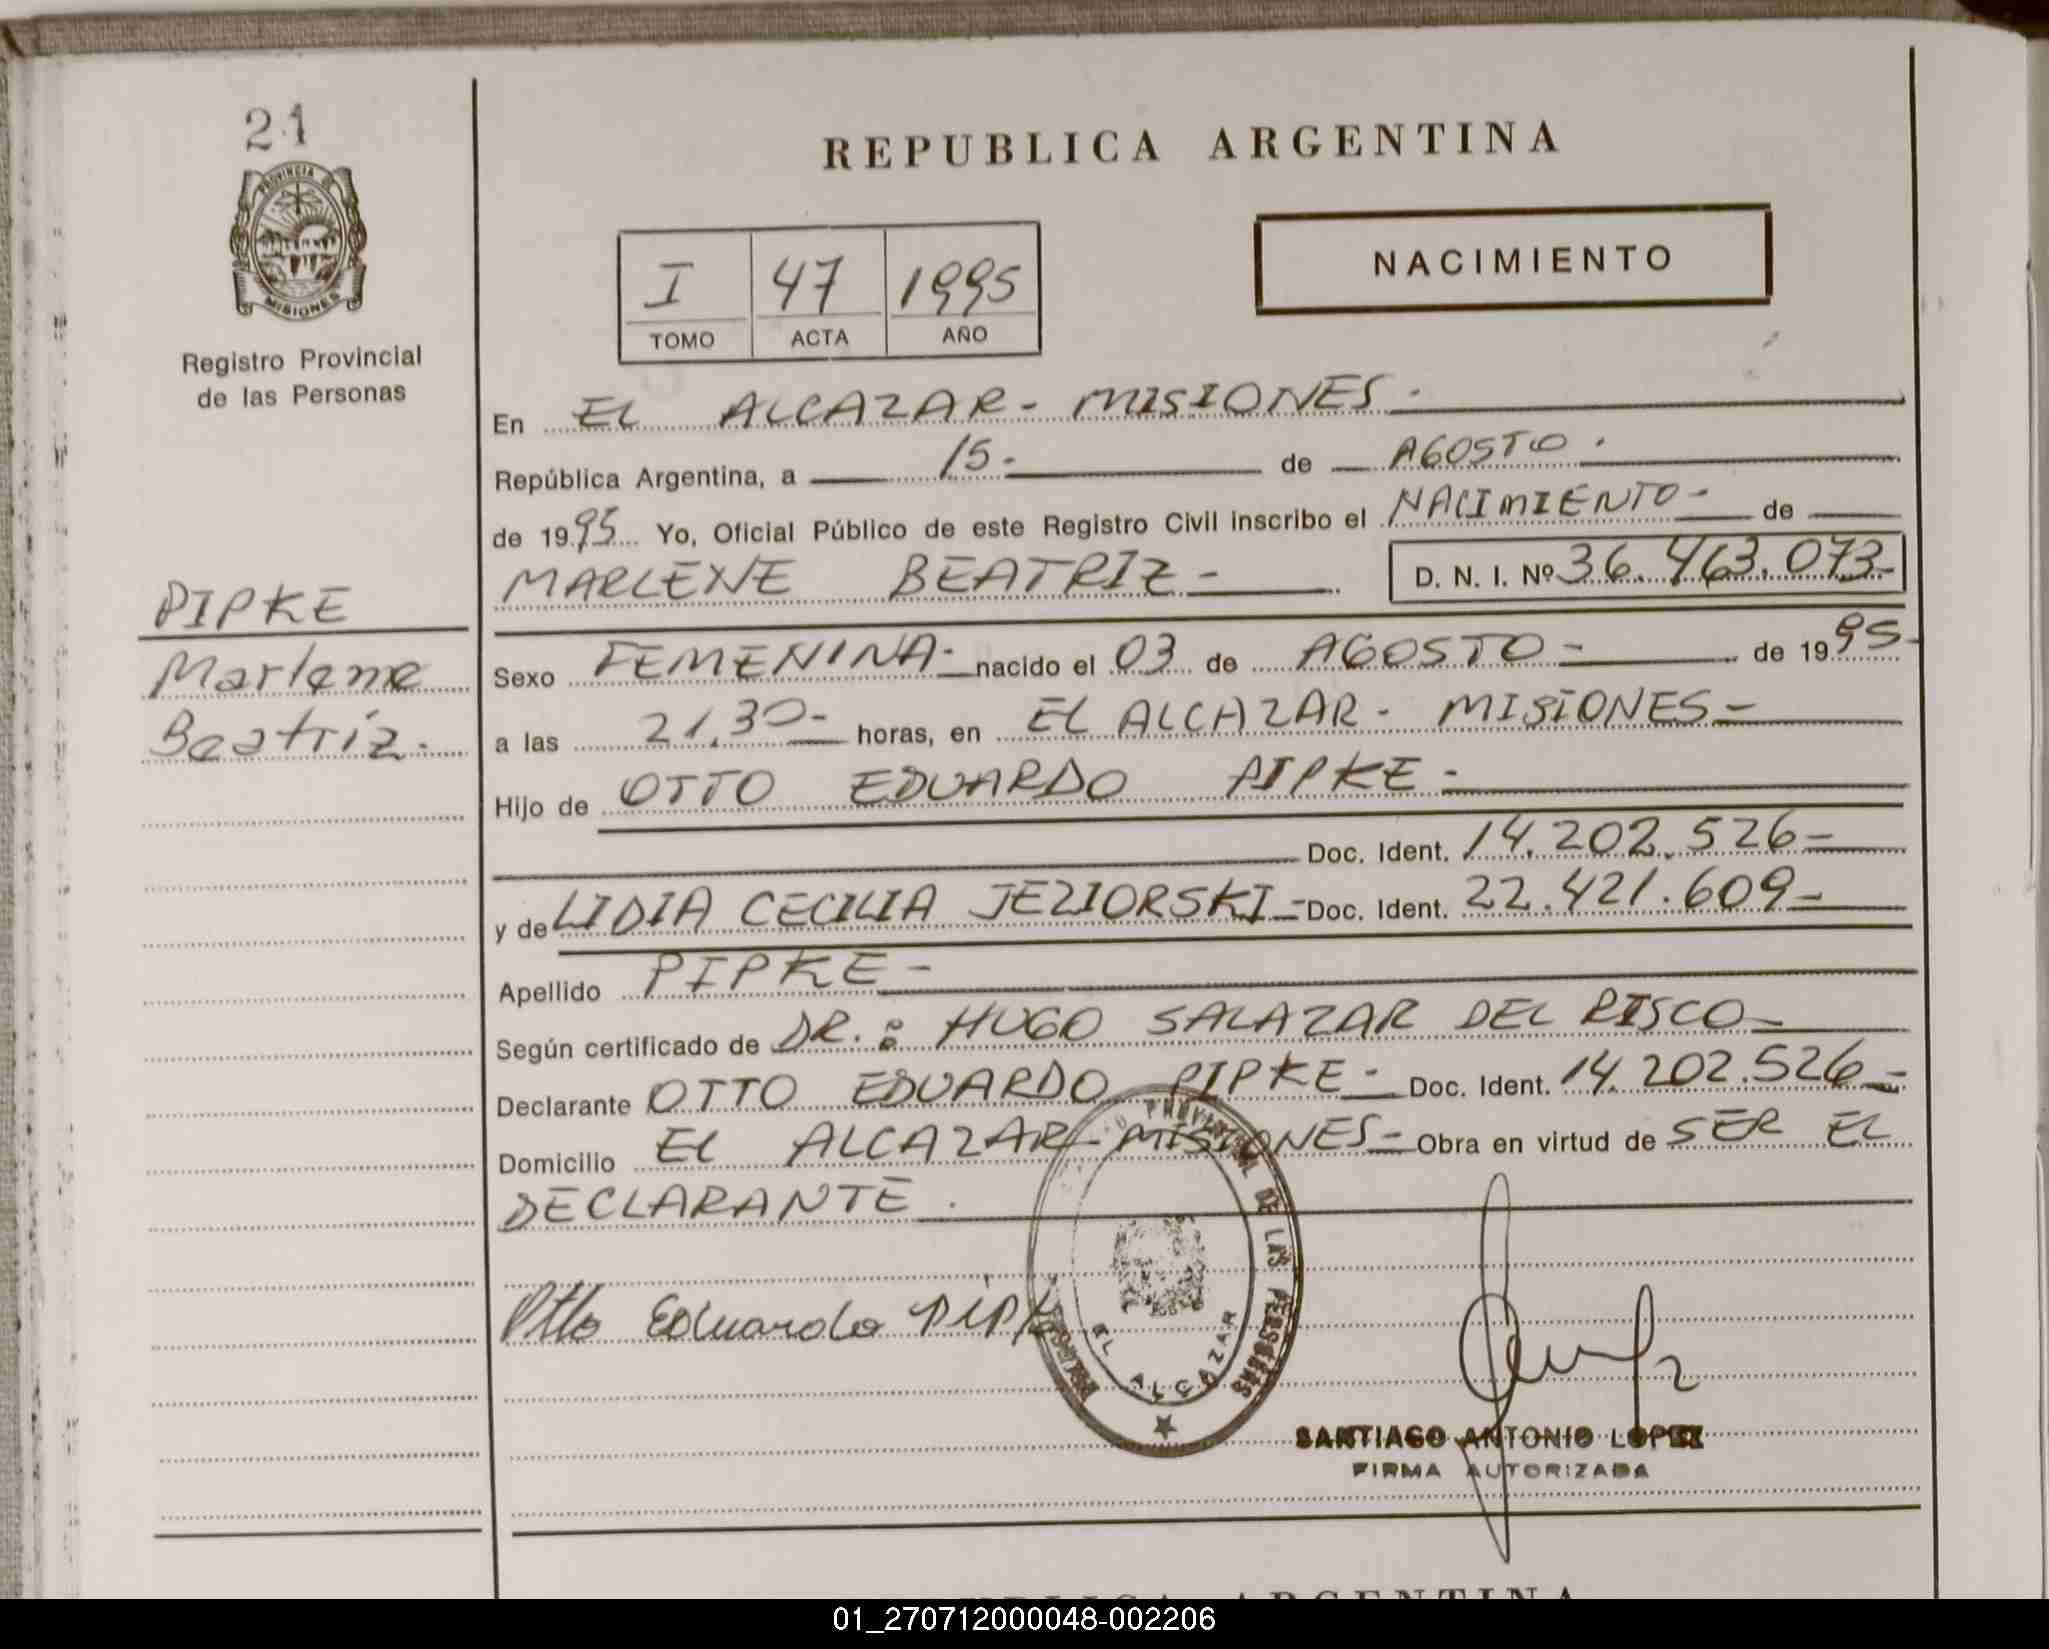 21
PROVINCIA DE
MISIONES
Registro Provincial
de las Personas
REPUBLICA ARGENTINA
I 47 1995
TOMO ACTA AÑO
NACIMIENTO
En EL ALCAZAR - MISIONES.-
República Argentina, a 15.- de AGOSTO.
de 1995 Yo, Oficial Público de este Registro Civil inscribo el NACIMIENTO- de
MARLENE BEATRIZ- D. N. I. Nº 36.463.073-
PIPKE
Marlene
Beatriz.
Sexo FEMENINA- nacido el 03 de AGOSTO- de 1995-
a las 21,30- horas, en EL ALCAZAR - MISIONES-
Hijo de OTTO EDUARDO PIPKE-
Doc. Ident. 14.202.526-
y de LIDIA CECILIA JEZIORSKI- Doc. Ident. 22.421.609-
Apellido PIPKE-
Según certificado de DR.: HUGO SALAZAR DEL RISCO-
Declarante OTTO EDUARDO PIPKE- Doc. Ident. 14.202.526-
Domicilio EL ALCAZAR - MISIONES- Obra en virtud de SER EL
DECLARANTE.
Otto Eduardo Pipke
PROVINCIAL DE LAS PERSONAS
EL ALCAZAR
SANTIAGO ANTONIO LOPEZ
FIRMA AUTORIZADA
01_270712000048-002206